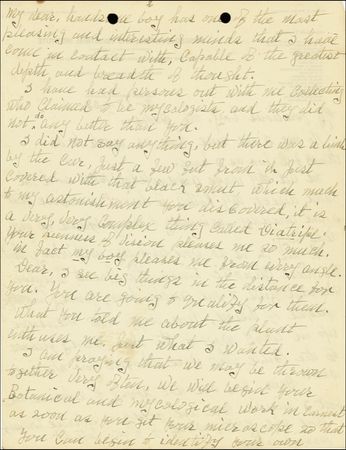 my dear, handsome boy has one of the most
pleasing and interesting minds that I have
come in contact with, Capable of the greatest
depth and breadth of thought.
I have had persons out with me collecting
who claimed to be mycologists and they did
not do any better than you.
I did not say anything, but there was a limb
by the Car, just a few feet from it just
covered with that black smut which much
to my astonishment you discovered, it is
a very, very complex thing called Diatripe.
Your keenness of vision pleases me so much.
In fact my boy pleases me from every angle.
Dear, I see big things in the distance for
you. You are going to qualify for them.
What you told me about the plant
enthuses me. Just what I wanted.
I am praying that we may be thrown
together very often, we will begin your
Botanical and mycological work in Earnest
as soon as you get your microscope so that
you can begin to identify your own